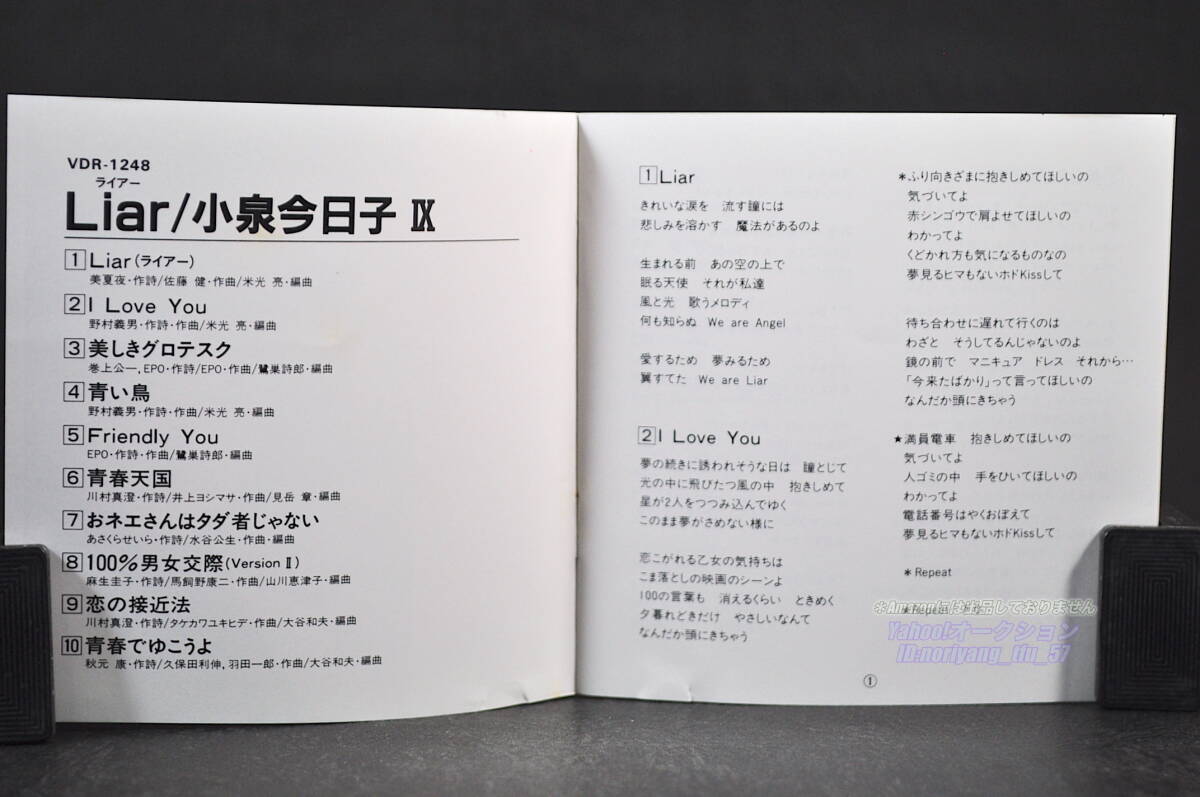 VDR-1248
ライアー
Liar/小泉今日子 Ⅸ
1 Liar(ライアー)
美夏夜・作詩/佐藤 健・作曲/米光 亮・編曲
2 I Love You
野村義男・作詩・作曲/米光 亮・編曲
3 美しきグロテスク
巻上公一,EPO・作詩/EPO・作曲/鷺巣詩郎・編曲
4 青い鳥
野村義男・作詩・作曲/米光 亮・編曲
5 Friendly You
EPO・作詩・作曲/鷺巣詩郎・編曲
6 青春天国
川村真澄・作詩/井上ヨシマサ・作曲/見岳 章・編曲
7 おネエさんはタダ者じゃない
あさくらせいら・作詩/水谷公生・作曲・編曲
8 100%男女交際(Version Ⅱ)
麻生圭子・作詩/馬飼野康二・作曲/山川恵津子・編曲
9 恋の接近法
川村真澄・作詩/タケカワユキヒデ・作曲/大谷和夫・編曲
10 青春でゆこうよ
秋元 康・作詩/久保田利伸,羽田一郎・作曲/大谷和夫・編曲
1 Liar
きれいな涙を 流す瞳には
悲しみを溶かす 魔法があるのよ
生まれる前 あの空の上で
眠る天使 それが私達
風と光 歌うメロディ
何も知らぬ We are Angel
愛するため 夢みるため
翼すてた We are Liar
2 I Love You
夢の続きに誘われそうな日は 瞳とじて
光の中に飛びたつ風の中 抱きしめて
星が2人をつつみ込んでゆく
このまま夢がさめない様に
恋こがれる乙女の気持ちは
こま落としの映画のシーンよ
100の言葉も 消えるくらい ときめく
夕暮れどきだけ やさしいなんて
なんだか頭にきちゃう
*ふり向きざまに抱きしめてほしいの
気づいてよ
赤シンゴウで肩よせてほしいの
わかってよ
くどかれ方も気になるものなの
夢見るヒマもないホドKissして
待ち合わせに遅れて行くのは
わざと そうしてるんじゃないのよ
鏡の前で マニキュア ドレス それから…
「今来たばかり」って言ってほしいの
なんだか頭にきちゃう
★満員電車 抱きしめてほしいの
気づいてよ
人ゴミの中 手をひいてほしいの
わかってよ
電話番号はやくおぼえて
夢見るヒマもないホドKissして
*Repeat
★Repeat
①
※Amazonには出品しておりません
Yahoo!オークション
ID:noriyang_tiu_57